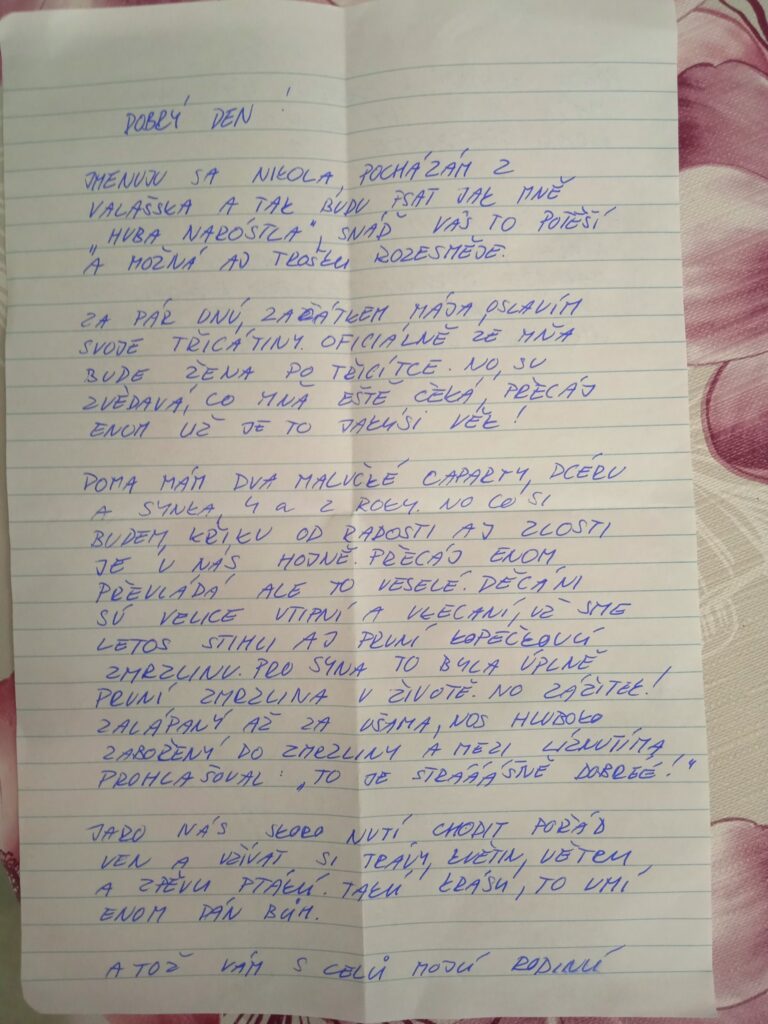 DOBRÝ DEN!
JMENUJU SA NIKOLA, POCHÁZÁM Z
VALAŠSKA A TAK BUDU PSAT JAK MNĚ
„HUBA NARÓSTLA", SNÁĎ VÁS TO POTĚŠÍ
A MOŽNÁ AJ TROŠKU ROZESMĚJE.
ZA PÁR DNŮ, ZAČÁTKEM MÁJA, OSLAVÍM
SVOJE TŘICÁTINY. OFICIÁLNĚ ZE MŇA
BUDE ŽENA PO TŘICÍTCE. NO, SU
ZVĚDAVÁ, CO MNĚ EŠTĚ ČEKÁ, PŘECAJ
ENOM UŽ JE TO JAKÝSI VĚK!
DOMA MÁM DVA MALUČKÉ CAPARTY, DCÉRU
A SYNKA, 4 a 2 ROKY. NO CO SI
BUDEM, KŘIKU OD RADOSTI AJ ZLOSTI
JE U NÁS HOJNĚ. PŘECAJ ENOM
PŘEVLÁDÁ ALE TO VESELÉ. DĚCÁNI
SÚ VELICE VTIPNÍ A UKECANÍ, UŽ SME
LETOS STIHLI AJ PRVNÍ KOPEČKOVÚ
ZMRZLINU. PRO SYNA TO BYLA ÚPLNĚ
PRVNÍ ZMRZLINA V ŽIVOTĚ. NO ZÁŽITEK!
ZALÁPANÝ AŽ ZA UŠAMA, NOS HLUBOKO
ZABOŘENÝ DO ZMRZLINY A MEZI LÍZNUTÍMA
PROHLAŠOVAL: „TO JE STRÁÁÁŠNĚ DOBRÉÉ!"
JARO NÁS SKORO NUTÍ CHODIT POŘÁD
VEN A UŽÍVAT SI TRÁVY, KVĚTIN, VĚTRU
A ZPĚVU PTÁKŮ. TAKÚ KRÁSU, TO UMÍ
ENOM PÁN BŮH.
A TOŽ VÁM S CELÚ MOJÚ RODINÚ